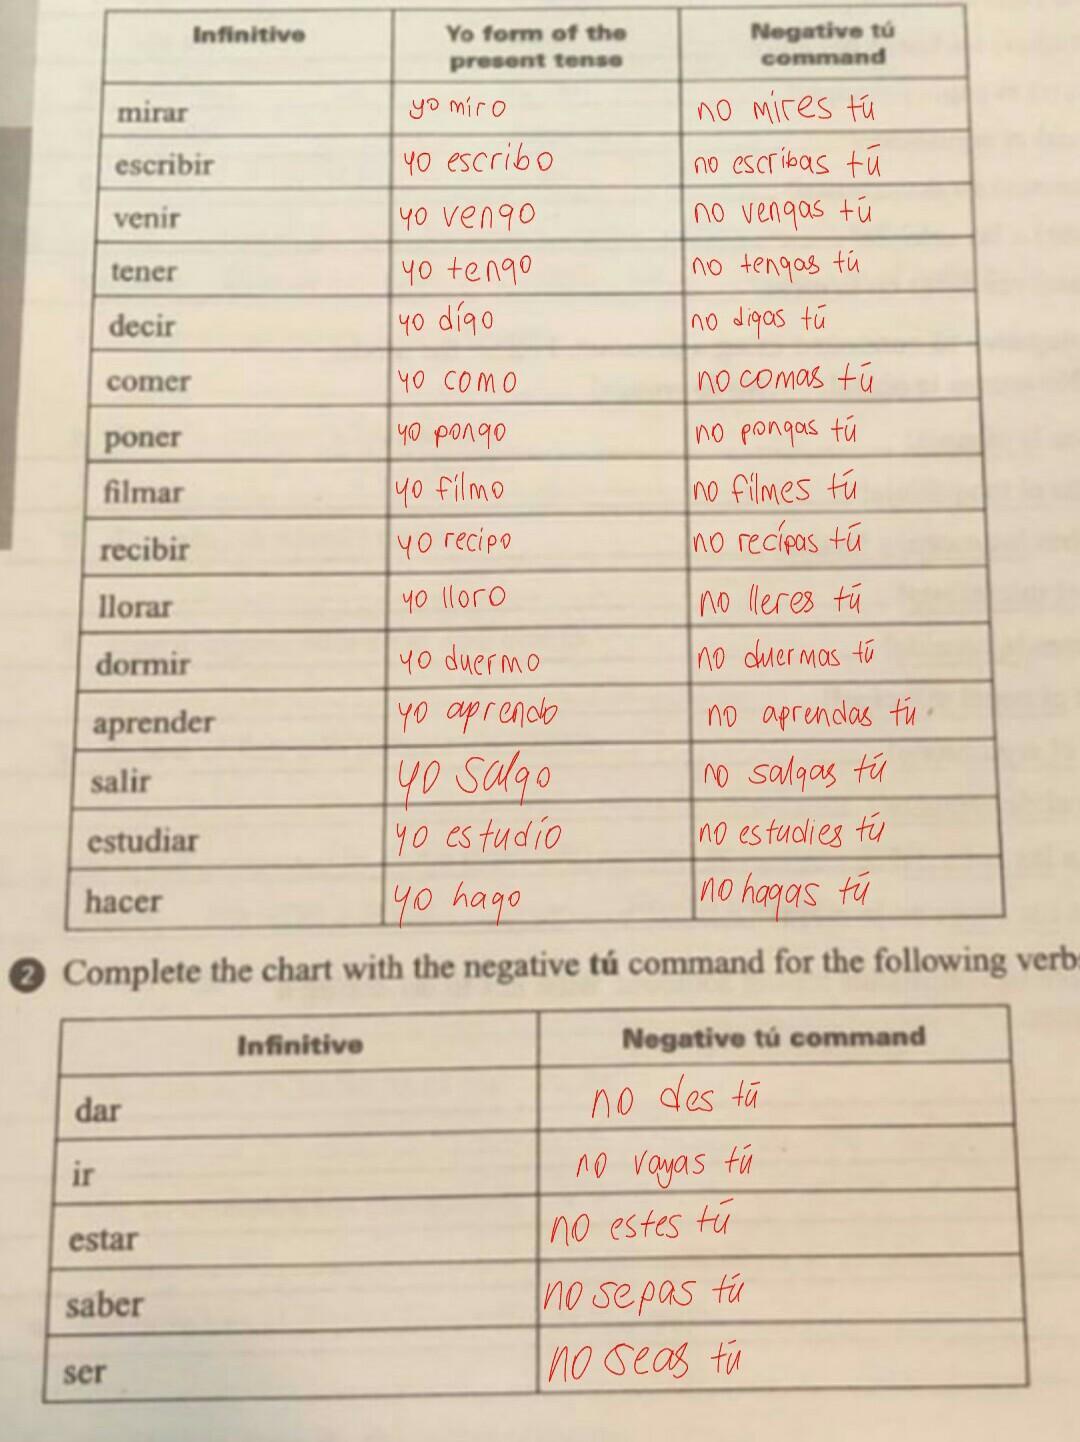 Infinitive Yo form of the present tense Negative tú command
mirar yo miro no mires tú
escribir yo escribo no escribas tú
venir yo vengo no vengas tú
tener yo tengo no tengas tú
decir yo digo no digas tú
comer yo como no comas tú
poner yo pongo no pongas tú
filmar yo filmo no filmes tú
recibir yo recipo no recipas tú
llorar yo lloro no lleres tú
dormir yo duermo no duermas tú
aprender yo aprendo no aprendas tú
salir yo salgo no salgas tú
estudiar yo estudio no estudies tú
hacer yo hago no hagas tú
2 Complete the chart with the negative tú command for the following verbs
Infinitive Negative tú command
dar no des tú
ir no vayas tú
estar no estes tú
saber no sepas tú
ser no seas tú